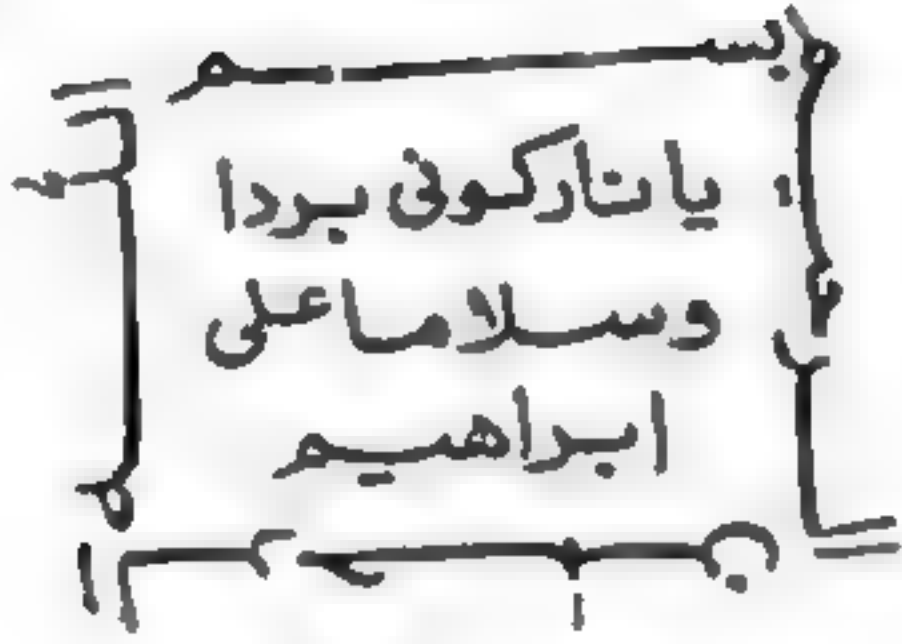 بسم
الله
الرحمن
الرحيم
يا نار كونى بردا
وسلاما على
ابراهيم